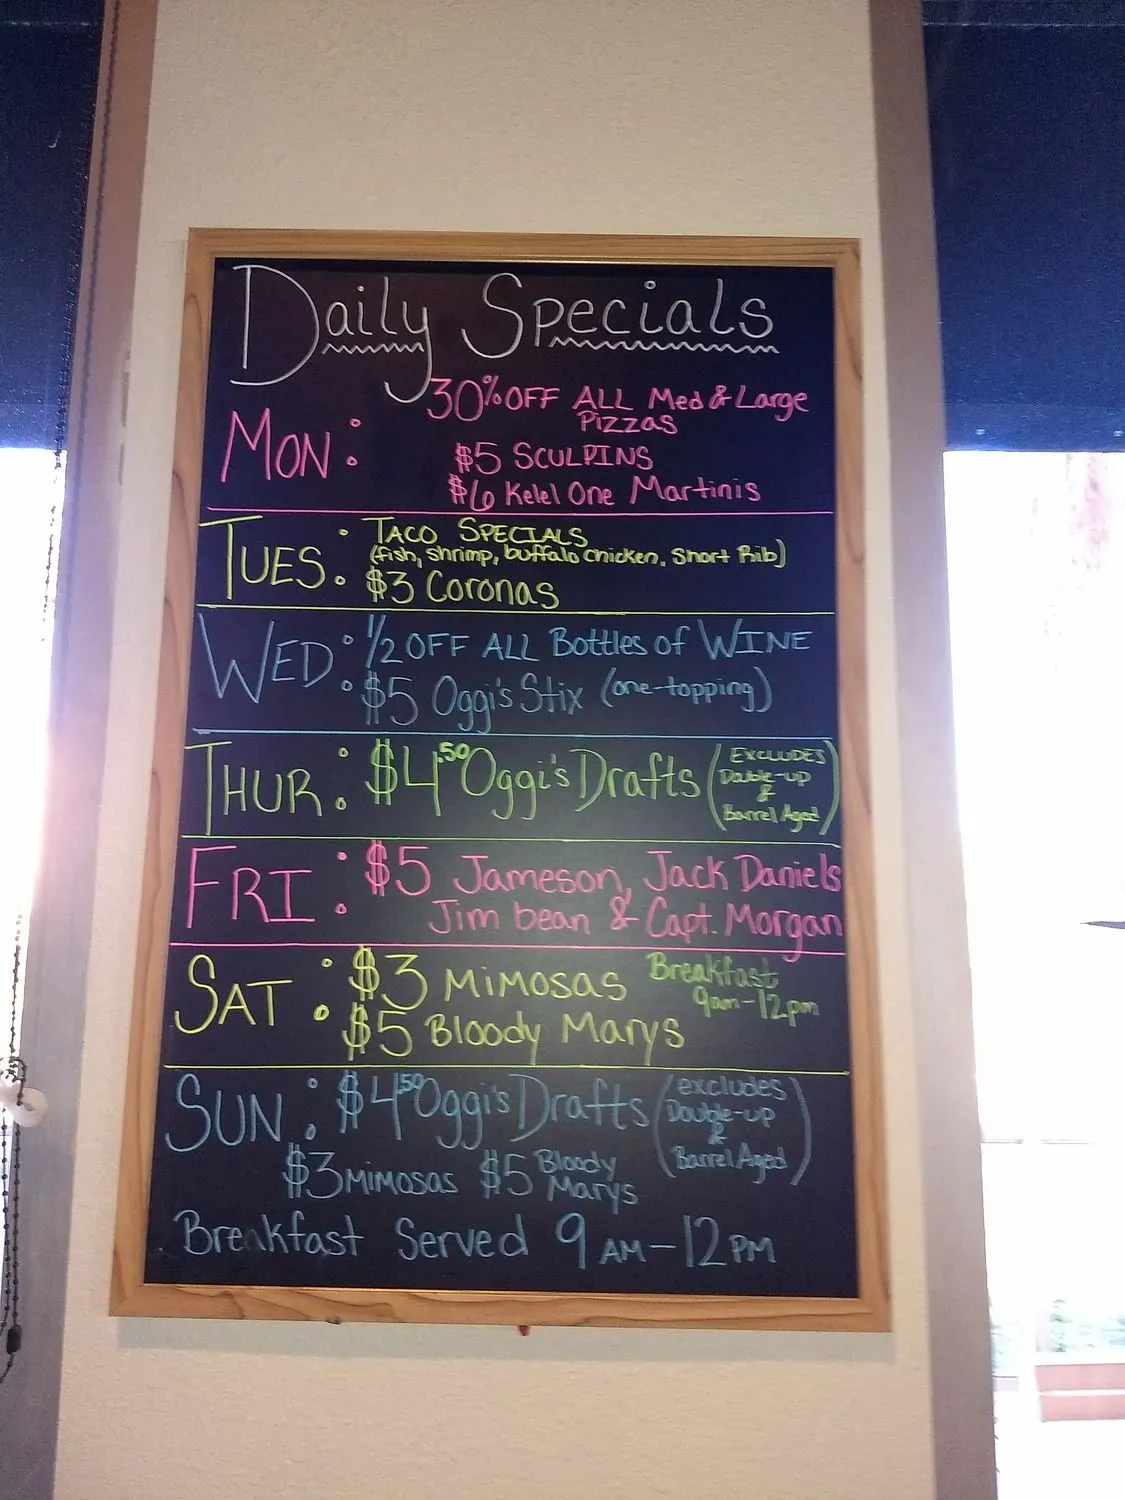 Daily Specials
MON: 30% OFF ALL Med & Large
Pizzas
$5 SCULPINS
$6 Kelel One Martinis
TUES: TACO SPECIALS
(fish, shrimp, buffalo chicken, Short Rib)
$3 Coronas
WED: 1/2 OFF ALL Bottles of WINE
$5 Oggi's Stix (one-topping)
THUR: $4.50 Oggi's Drafts (EXCLUDES
Double-up
&
Barrel Aged)
FRI: $5 Jameson, Jack Daniels
Jim bean & Capt. Morgan
SAT: $3 MIMOSAS Breakfast
9am-12pm
$5 Bloody Marys
SUN: $4.50 Oggi's Drafts (excludes
Double-up
&
Barrel Aged)
$3 MIMOSAS $5 Bloody
Marys
Breakfast Served 9 AM - 12 PM